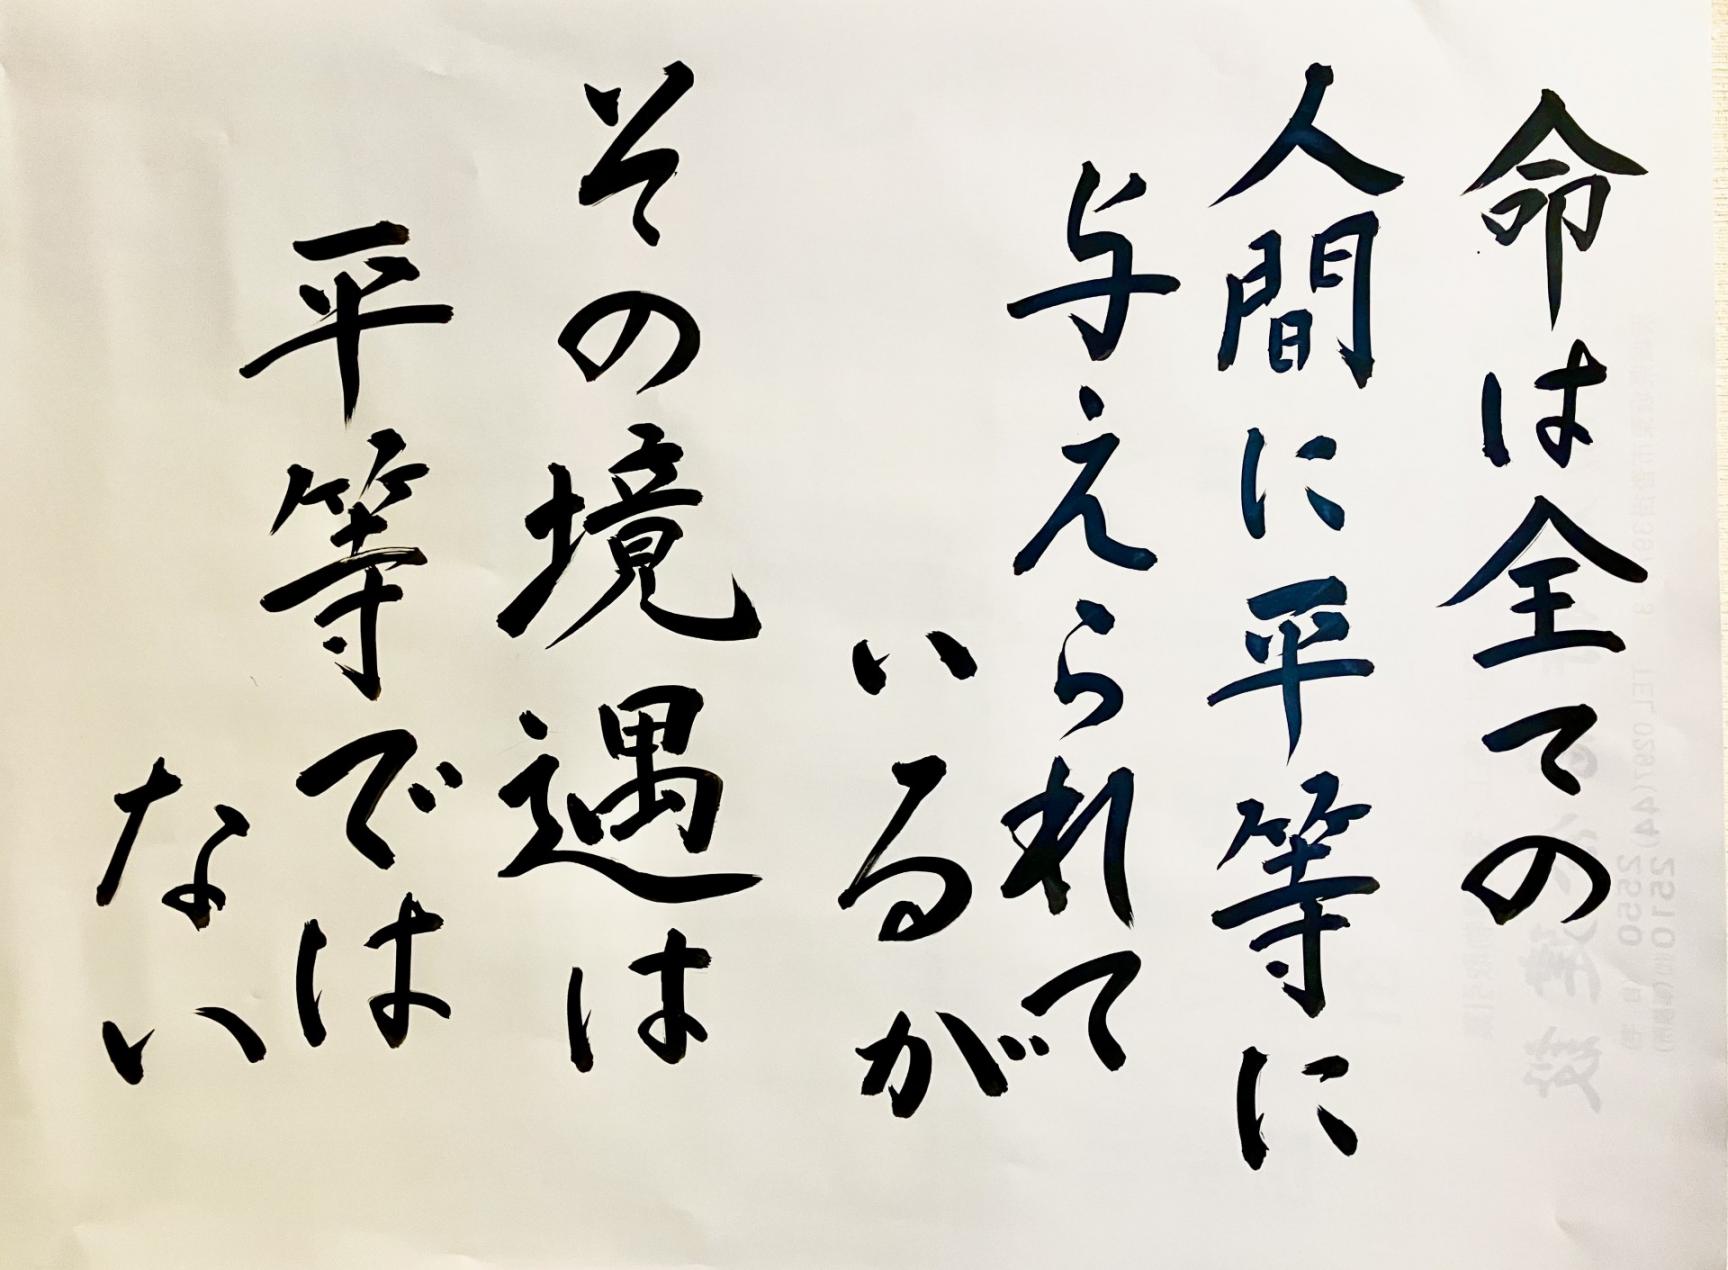 命は全ての
人間に平等に
与えられて
いるが
その境遇は
平等では
ない